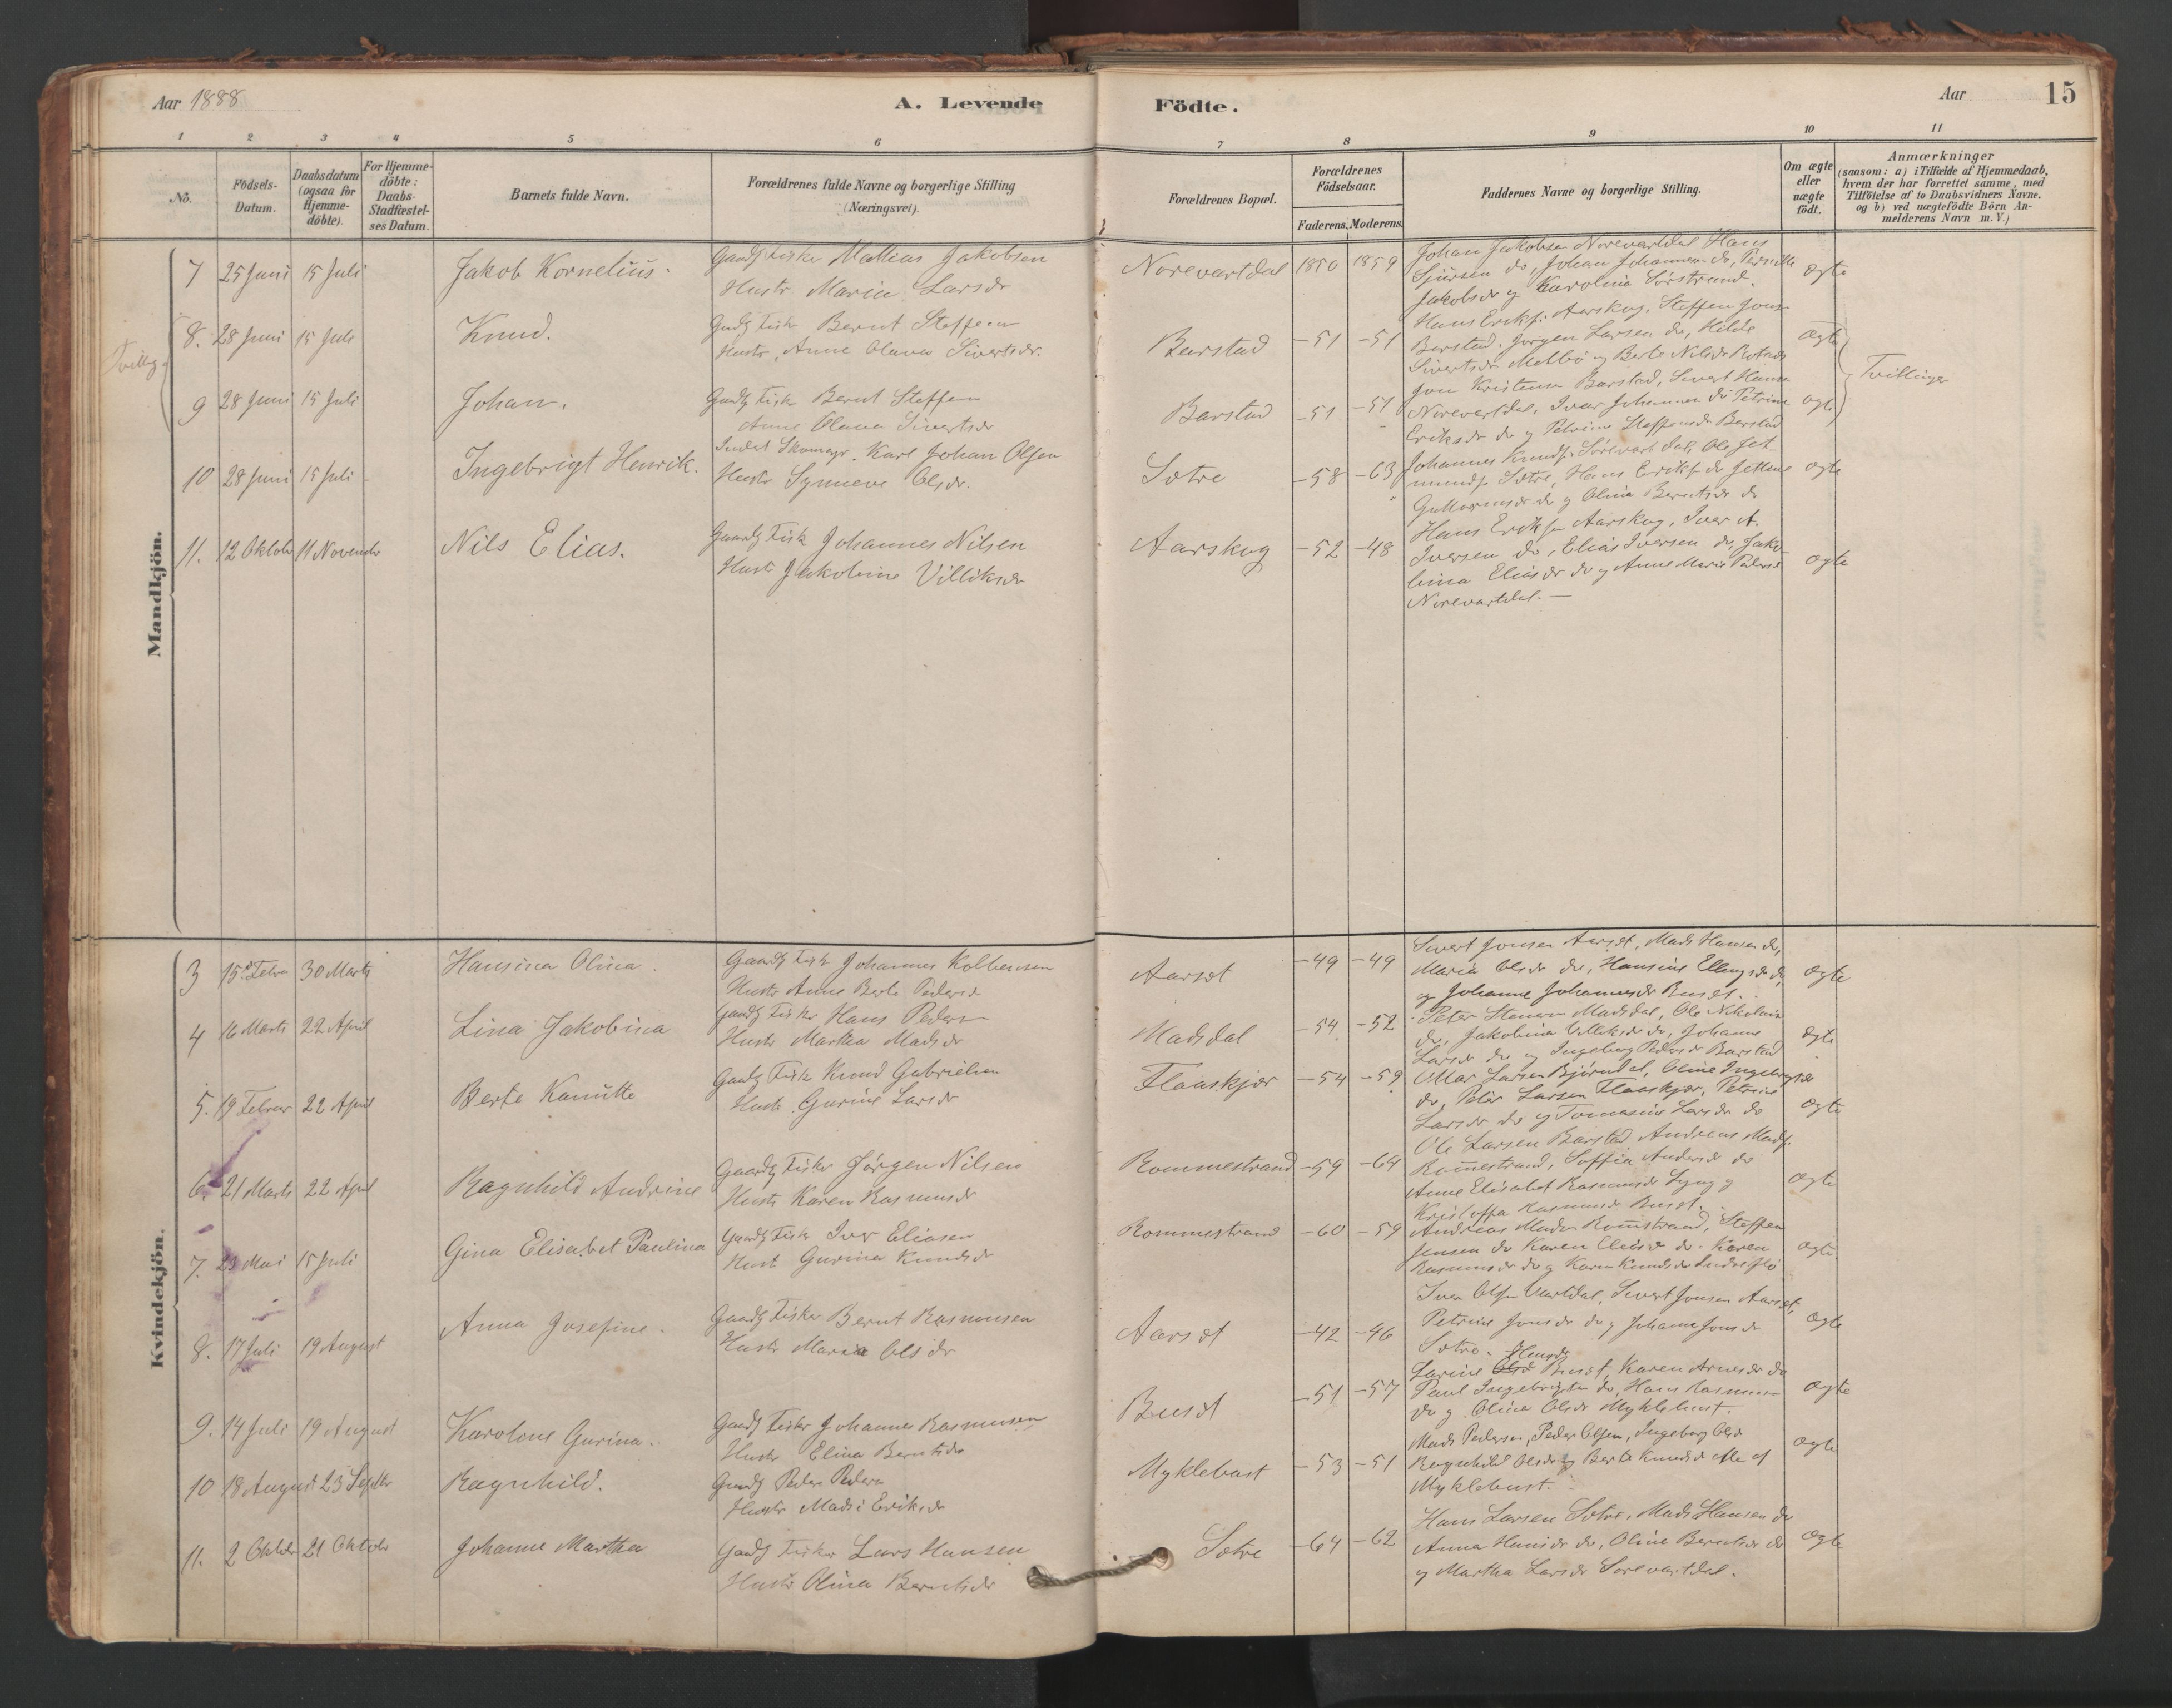 Aar 1888
A. Levende
Födte.
Aar
15
1 2 3 4 5 6 7 8 9 10 11
No.
Födsels-Datum.
Daabsdatum (ogsaa for Hjemme-döbte).
For Hjemme-döbte: Daabs-Stadfæstel-ses Datum.
Barnets fulde Navn.
Forældrenes fulde Navne og borgerlige Stilling (Næringsvei).
Forældrenes Bopæl.
Forældrenes Födselsaar.
Faderens. Moderens.
Faddernes Navne og borgerlige Stilling.
Om ægte eller uægte födt.
Anmærkninger (saasom: a) i Tilfælde af Hjemmedaab, hvem der har forrettet samme, med Tilföielse af to Daabsvidners Navne. og b) ved uægtefödte Börn Anmelderens Navn m. V.)
Mandkjön.
7 25 Juni 15 Juli Jakob Kornelius. Gaardg Fisker Mattias Jakobsen
Hustr Maria Larsdr
Norevartdal 1850 1859
Johan Jakobsen Norevartdal Hans
Sjursen do, Johan Johannesen do, Pernille
Jakobsdr og Karolina Sørstrand.
ægte
8. 28 Juni 15 Juli Knud. Gaardg Fisk Bernt Steffensen
Hustr, Anne Olava Sivertsdr.
Barstad -51 -51
Hans Eriks. Aarskog, Steffen Jons
Barstad. Jørgen Larsen do, Hilda
Sivertsdr Melbø og Berte Nilsdr
ægte
Tvillinger
9 28 Juni 15 Juli Johan. Gaardg Fisk Bernt Steffen
Anne Olava Sivertsdr
Barstad -51 -51
Jon Kristensen Barstad, Sivert Hansen
Norevartdal, Ivar Johannesen do Petrine
Eriksdr do og Petrine Steffensdr Barstad
ægte
10 28 Juni 15 Juli Ingebrigt Henrik. Inderst Skomagr. Karl Johan Olsen
Hustr Synneve Olsdr.
Sætre -58 -63
Johannes Knuds. Sørevartdal, Ole Jet
munds Sætre, Hans Eriks do Jetlene
Guttormsdr do og Olina Berntsdr do
ægte
11. 12 Oktobr 11 Novembr Nils Elias. Gaardg Fisk Johannes Nilsen
Hustr Jakobine Villiksdr
Aarskog -52 -48
Hans Eriksen Aarskog, Iver A.
Iversen do, Elias Iversen do, Jako-
bina Eliasdr do og Anne Marie Pedersd
Norevartdal.
ægte
Kvindekjön.
3 15 Febru 30 Marts Hansina Olina. Gaardg Fisk Johannes Kolbensen
Hustr Anne Berte Pedersd
Aarset -49 -49
Sivert Jonsen Aarset, Mads Hansen do,
Maria Olsdr do, Hansine Ellingsdr do,
og Johanne Johannesdr Buset.
ægte
4 16 Marts 22 April Lina Jakobina Gaardg Fisker Hans Peders
Hustr Martha Madsdr
Madsdal -54 -52
Peter Stenersen Madsdal, Ole Nikolais
do, Jakobina Villiksdr do, Johanne
Larsdr do og Ingeborg Pedersdr Barstad
ægte
5. 19 Februar 22 April Berte Kanutte Gaardg Fisk Knud Gabrielsen
Hustr. Gurine Larsdr
Flaaskjær -54 -59
Larsen Bjørndal, Oline Ingebrigtsdr
do, Peter Larsen Flaaskjær, Petrine
Larsdr do og Tomasine Larsdr do
ægte
6. 21 Marts 22 April Ragnhild Andrine Gaardg Fisker Jørgen Nilsen
Hustr Karen Rasmusdr
Rommestrand -59 -64
Ole Larsen Barstad Andreas Mads.
Romestrand, Soffia Andersdr do
Anne Elisabet Rasmusdr Lyng og
Kristoffa Rasmusdr Buset.
ægte
7. 23 Mai 15 Juli Gina Elisabet Paulina Gaardg Fisk Iver Eliasen
Hustr Gurina Knudsdr
Rommestrand -60 -59
Andreas Madsen Romestrand, Steffen
Jensen do Karen Eliasdr do. Karen
Rasmusdr do og Karen Knudsdr Indreflø
ægte
8. 17 Juli 19 August Anna Josefine. Gaardg Fisker Bernt Rasmusen
Hustr Maria Olsdr
Aarset -42 -46
Iver Olsen Vartdal, Sivert Jonsen Aarset,
Petrine Jonsdr do og Johanne Jonsdr
Sætre.
ægte
9. 14 Juli 19 August Karolene Gurina. Gaardg Fisker Johannes Rasmusen
Hustr Elina Berntsdr
Buset -51 -57
Larine Hansdr Buset, Karen Arnesdr do
Paul Ingebrigtsn do, Hans Rasmusen
do og Olina Olsdr Myklebust.
ægte
10 18 August 23 Septbr Ragnhild. Gaardg Peder Peders
Hustr Madsi Eriksdr
Myklebust -53 -51
Mads Pedersen, Peder Olsen, Ingeborg Olsd
Ragnhild Olsdr og Berte Knudsd alle af
Myklebust.
ægte
11. 2 Oktobr 21 Oktobr Johanne Martha Gaardg Fisker Lars Hansen
Hustr Olina Berntsdr
Sætre -64 -62
Hans Larsen Sætre, Mads Hansen do
Anna Hansdr do, Oline Berntsdr do
og Martha Larsdr Sørevartdal.
ægte